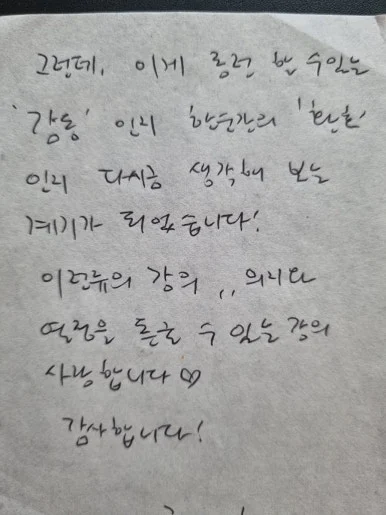 그런데, 이게 공련 할 수 있는
'감동' 인지 한순간의 '환호'
인지 다시금 생각해 보는
계기가 되었습니다!
이런류의 강의 ,, 의지와
열정을 돋굴 수 있는 강의
사랑합니다 ♡
감사합니다!